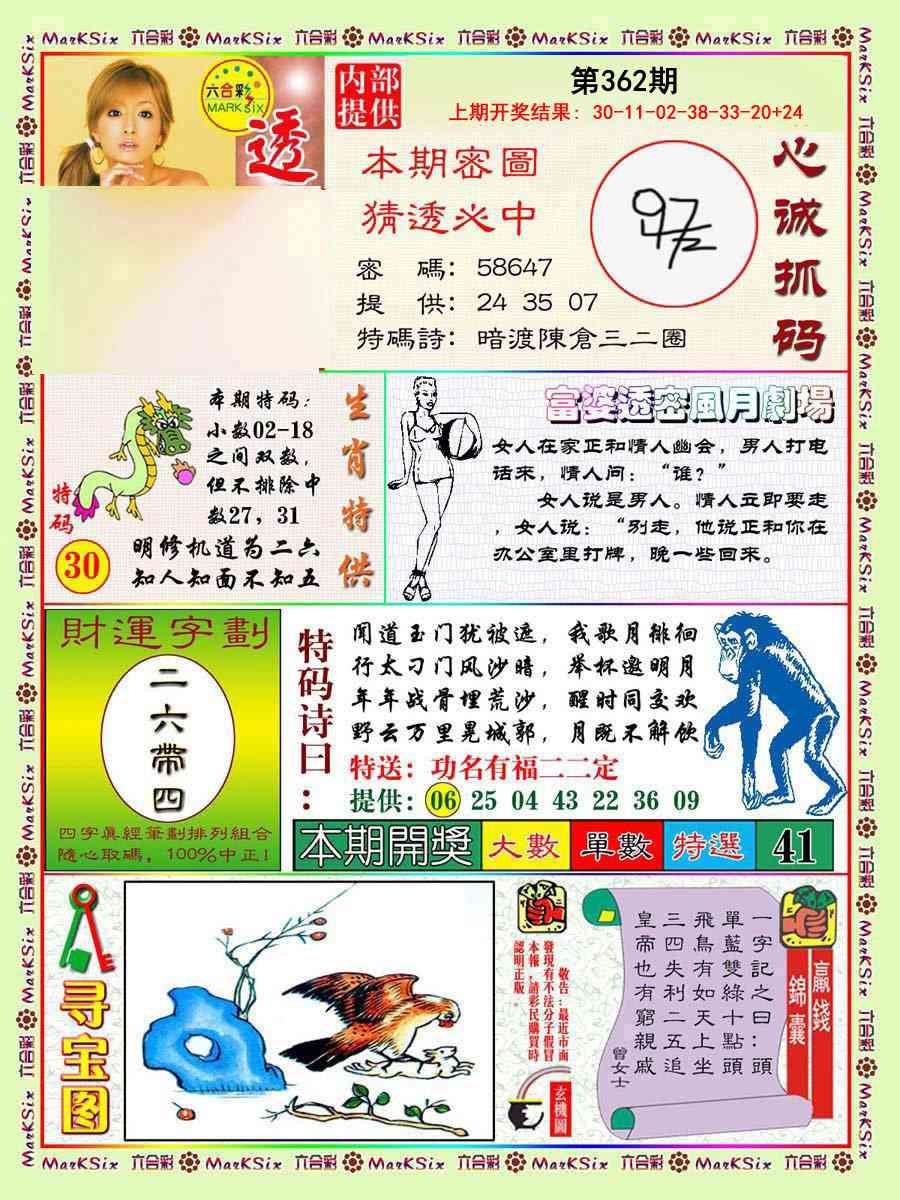 MarKSix 六合彩 MarKSix 六合彩 MarKSix 六合彩 MarKSix 六合彩 MarKSix 六合彩
六合彩
MARK SIX
透
内部
提供
第362期
上期开奖结果：30-11-02-38-33-20+24
本期密圖
猜透必中
密　碼：58647
提　供：24 35 07
特碼詩：暗渡陳倉三二圈
心诚抓码
本期特码：
小数02-18
之间双数，
但不排除中
数27，31
特码
30
明修机道为二六
知人知面不知五
生肖特供
富婆透密風月劇場
女人在家正和情人幽会，男人打电
话来，情人问：“谁？”
女人说是男人。情人立即要走
，女人说：“别走，他说正和你在
办公室里打牌，晚一些回来。
財運字劃
二六帶四
四字眞經筆劃排列組合
隨心取碼，100%中正!
特码诗曰：
闻道玉门犹被遮，我歌月徘徊
行太刁门风沙暗，举杯邀明月
年年战骨埋荒沙，醒时同交欢
野云万里晃城郭，月既不解饮
特送：功名有福二二定
提供：06 25 04 43 22 36 09
本期開獎 大數 單數 特選 41
寻宝图
敬告：最近市面
發現有不法分子假冒
本報，請彩民購買時
認明正版。
玄機圖
贏錢
錦囊
一字記之曰：頭
單藍雙綠十點頭
飛鳥有如天上坐
三四失利二五追
皇帝也有窮親戚
曾女士
MarKSix 六合彩 MarKSix 六合彩 MarKSix 六合彩 MarKSix 六合彩 MarKSix 六合彩